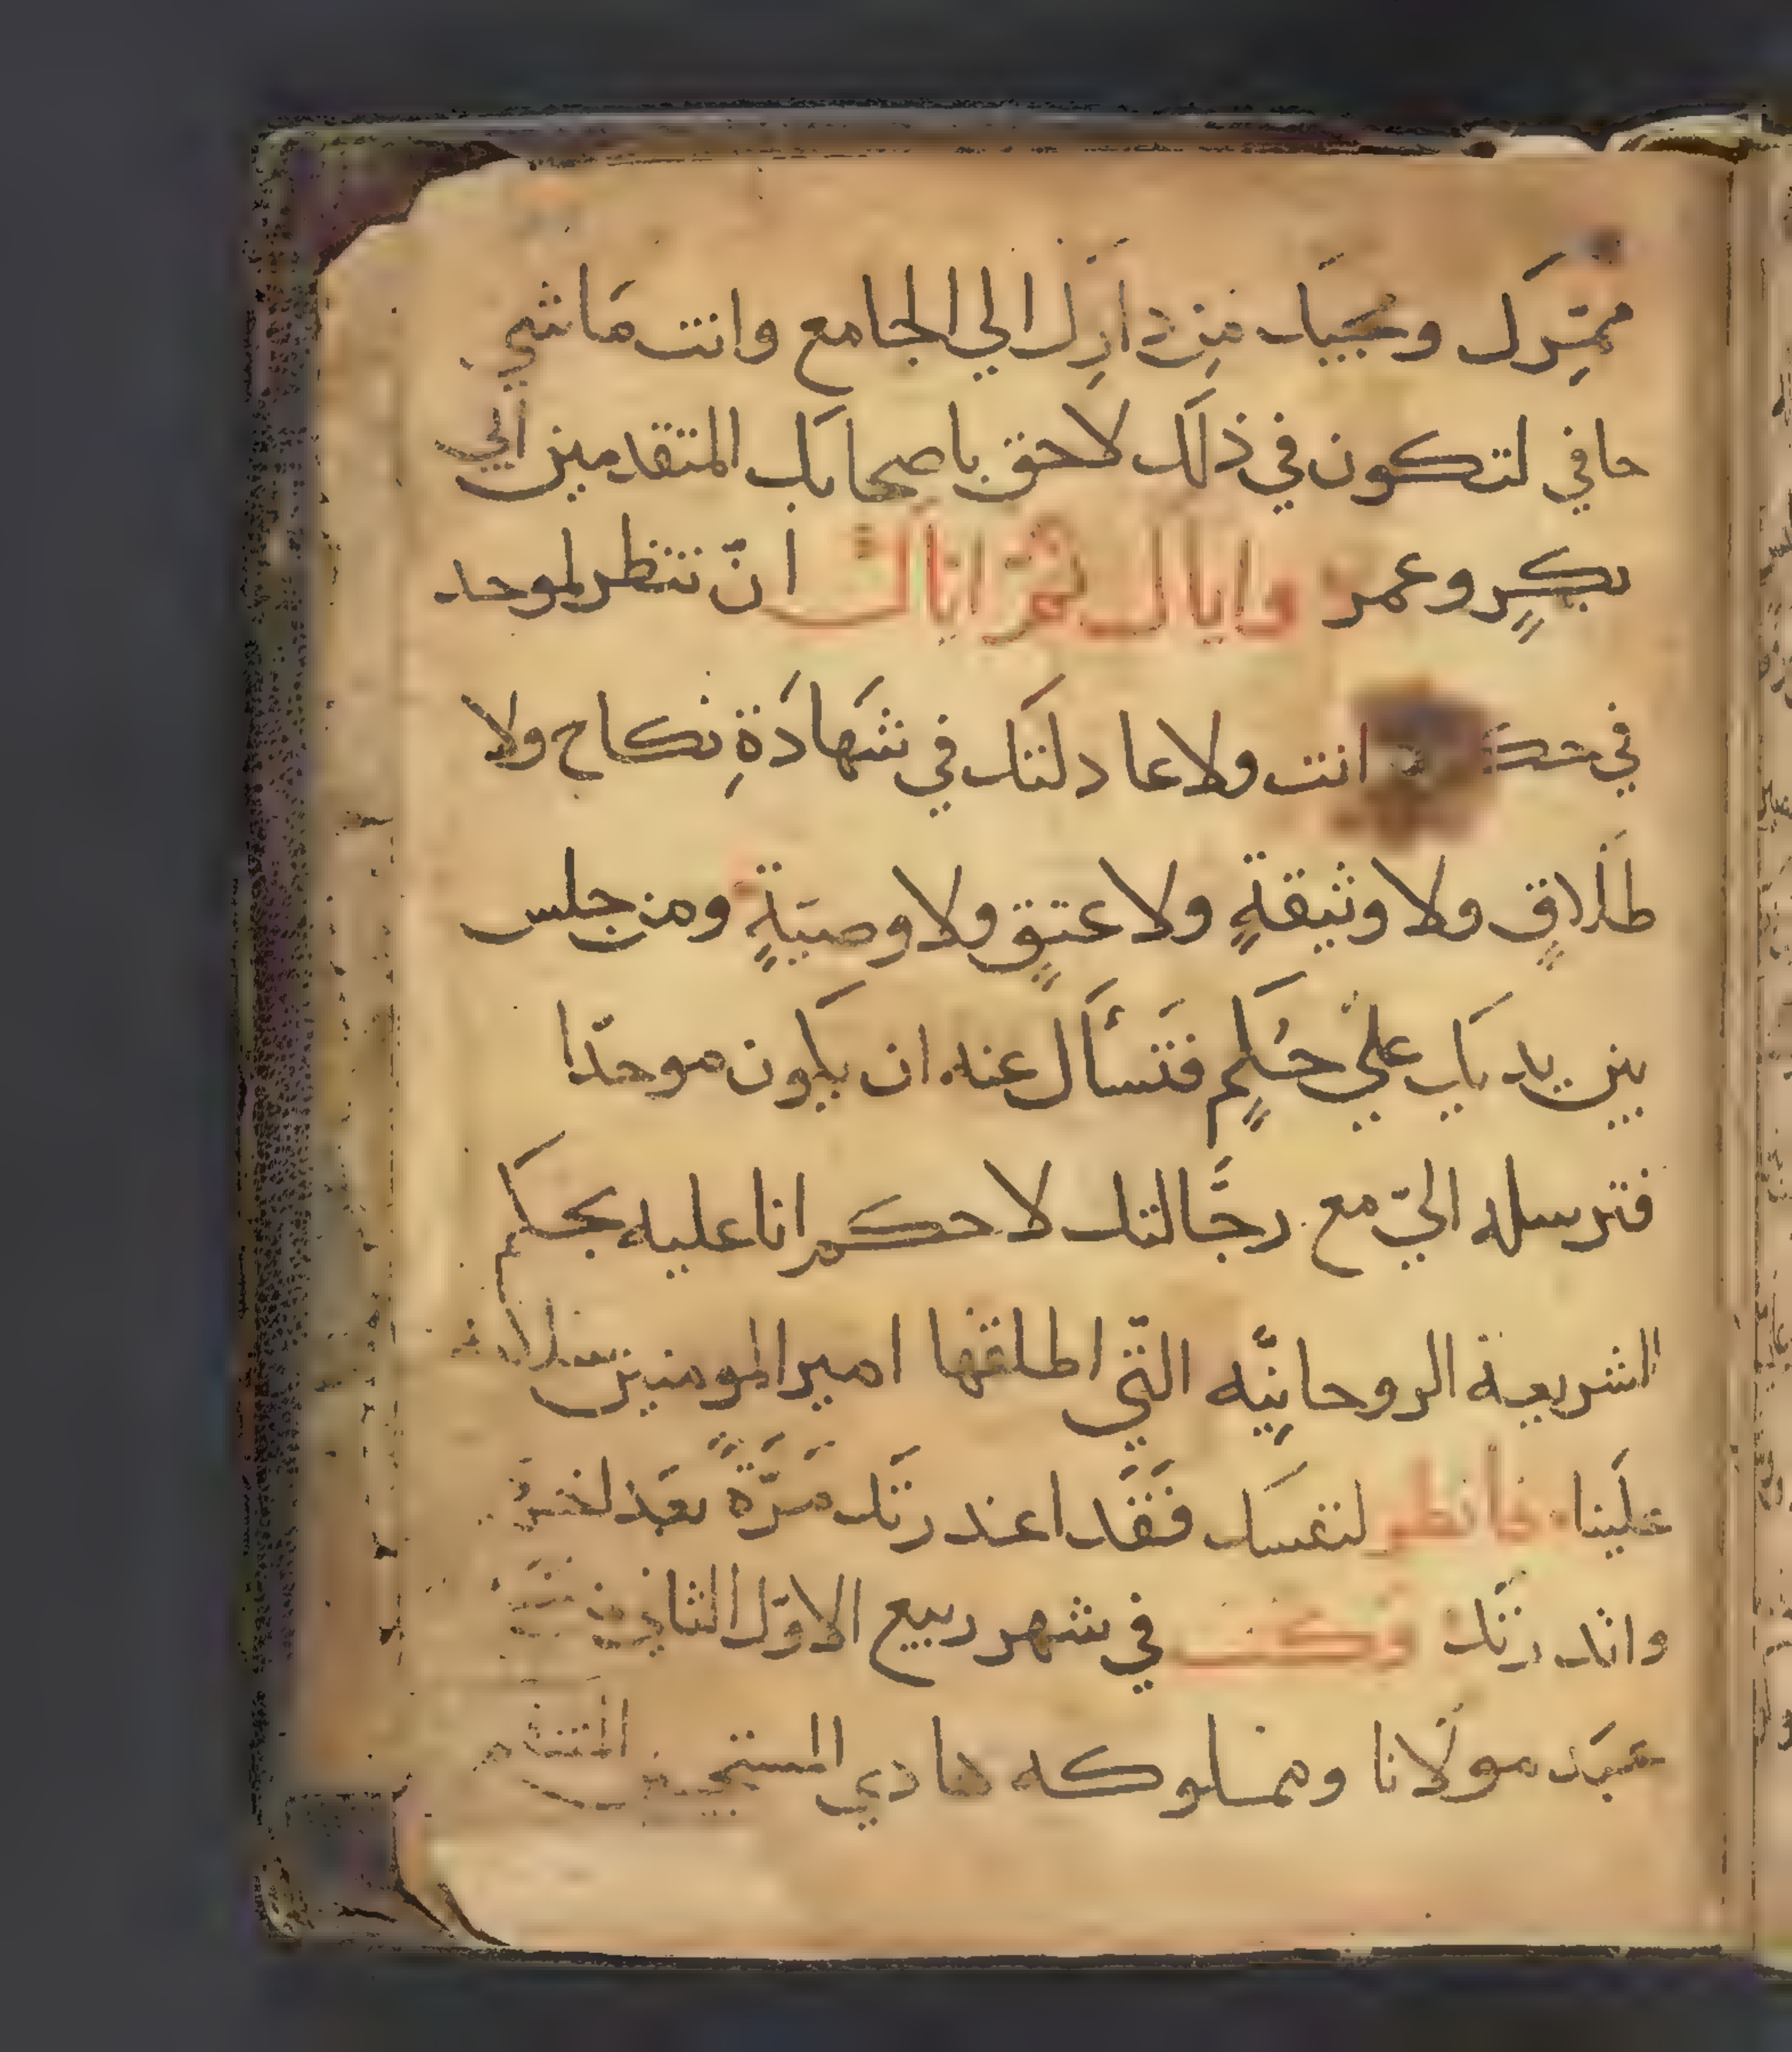 ممتزك ومجيك من دارك الي الجامع وانت ماشي
حافي لتكون في ذلك لاحق باصحابك المتقدمين ابي
بكرٍ وعمر واياك ثم اياك ان تنظر لموحد
في انت ولا عادلتك في شهادةِ نكاح ولا
طلاقٍ ولا وثيقةٍ ولا عتقٍ ولا وصيةٍ ومن جلس
بين يديك علي حكمٍ فتسأل عنه ان يكون موحدّا
فترسله اليّ مع رجّالتك لاحكم انا عليه بحكم
الشريعة الروحانيّه التّي اطلقها امير المومنين سلامه
علينا فانظر لنفسك فقد اعذرتك مرّةً بعد اخرى
وانذرتك وكتب في شهر ربيع الاوّل الثاني من
عبد مولانا ومملوكه هادي المستجيبين المنتقم